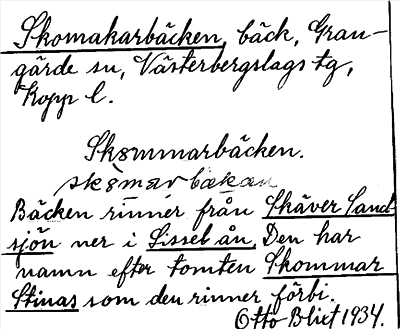 Skomakarbäcken, bäck, Gran-
gärde sn, Västerbergslags tg,
Kopp l.
Skommarbäcken.
skòmar bäkan
Bäcken rinner från Skäver Sand-
sjön ner i Lissel ån. Den har
namn efter tomten Skommar
Stinas som den rinner förbi.
Otto Blixt 1934.